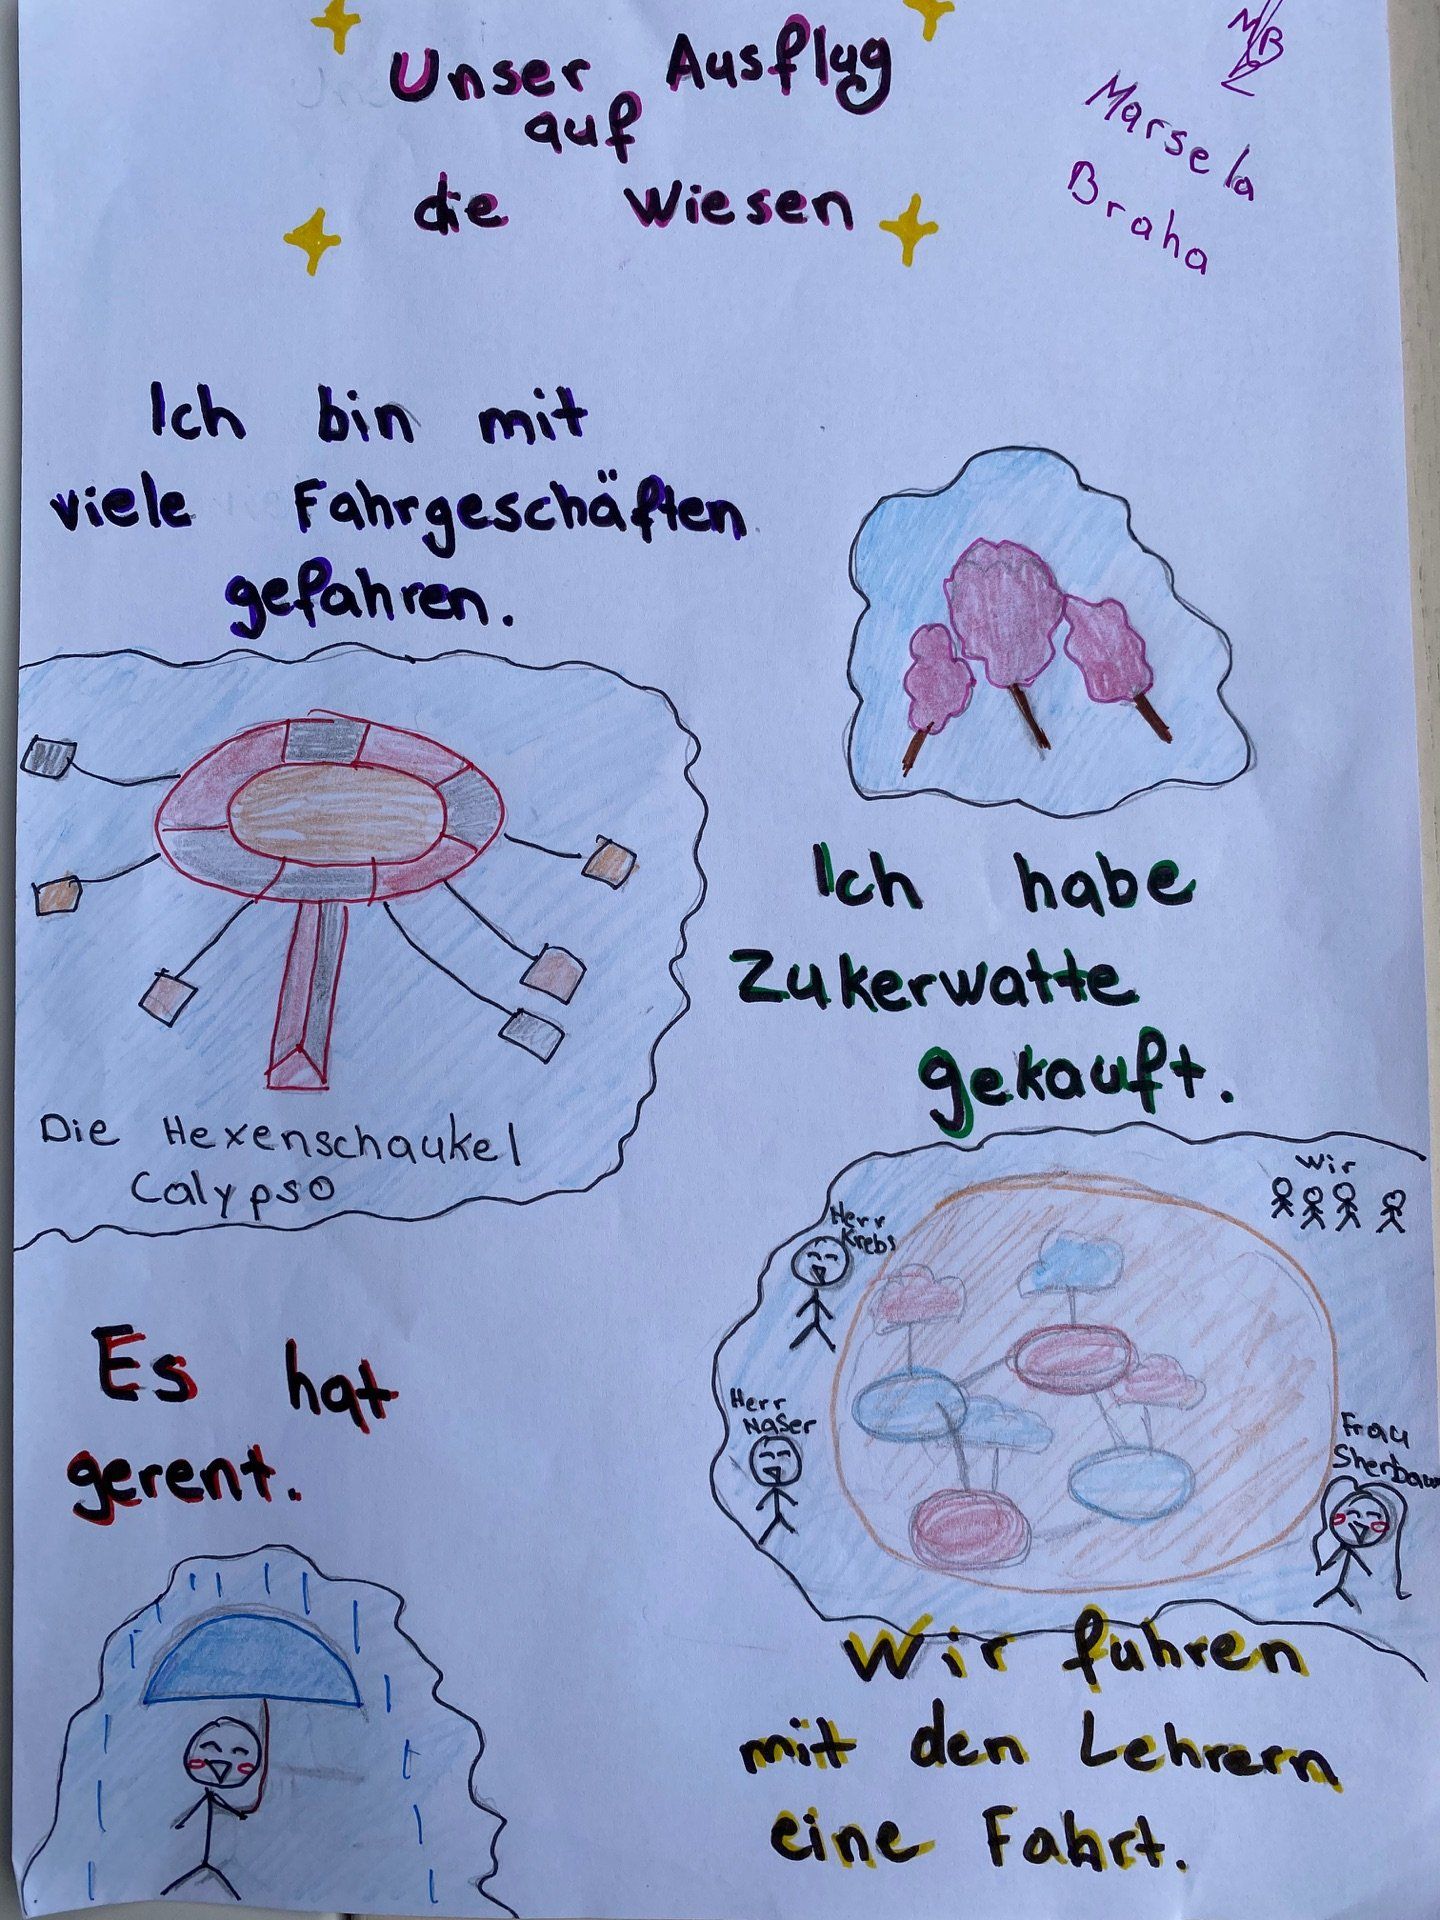 Unser Ausflug
auf
die Wiesen
MB
Marsela
Braha
Ich bin mit
viele Fahrgeschäften
gefahren.
Die Hexenschaukel
Calypso
Ich habe
Zukerwatte
gekauft.
Wir
Herr
Krebs
Herr
Naser
Frau
Es hat
gerent.
Wir fuhren
mit den Lehrern
eine Fahrt.